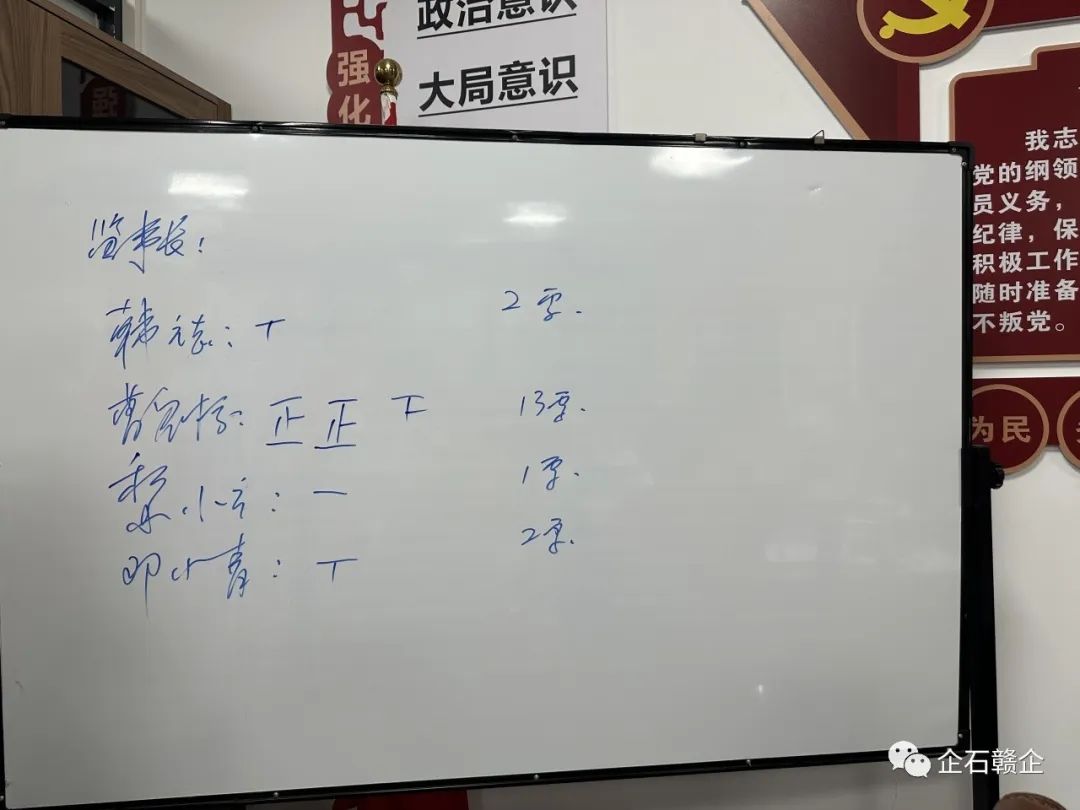 政治意识
大局意识
强化
我志
党的纲领
员义务，
纪律，保
积极工作
随时准备
不叛党。
为民
监事长：
韩元志：丅 2票.
曹 正 正 下 13票.
黎小方：一 1票.
邓小青：丅 2票.
企石赣企